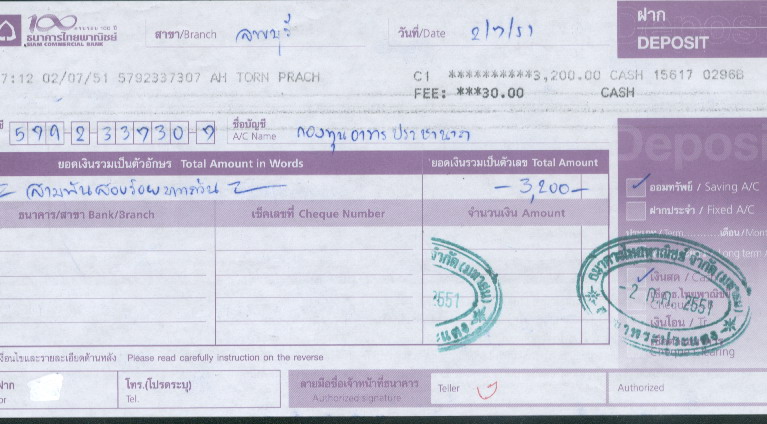 ๑๐๐
ธนาคารไทยพาณิชย์
SIAM COMMERCIAL BANK
สาขา/Branch ลพบุรี
วันที่/Date 2/7/51
ฝาก
DEPOSIT
7:12 02/07/51 5792337307 AH TORN PRACH C1 **********3,200.00 CASH 15617 0296B
FEE: ***30.00 CASH
5 7 9 2 3 3 7 3 0 7 ชื่อบัญชี
A/C Name กองทุนอาทร ประชานาถ
ยอดเงินรวมเป็นตัวอักษร Total Amount in Words ยอดเงินรวมเป็นตัวเลข Total Amount
Deposi
สามพันสองร้อยบาทถ้วน -3,200-
ออมทรัพย์ / Saving A/C
ธนาคาร/สาขา Bank/Branch เช็คเลขที่ Cheque Number จำนวนเงิน Amount
ฝากประจำ / Fixed A/C
เงินสด / Cas
ธนาคารไทยพาณิชย์ จำกัด (มหาชน)
-2 ก.ค. 2551
จำกัด (มหาชน)
2551
เงินโอน / Tr
Cheque Clearing
งื่อนไขและรายละเอียดด้านหลัง Please read carefully instruction on the reverse
ฝาก
or
โทร.(โปรดระบุ)
Tel.
ลายมือชื่อเจ้าหน้าที่ธนาคาร
Authorized signature
Teller
Authorized